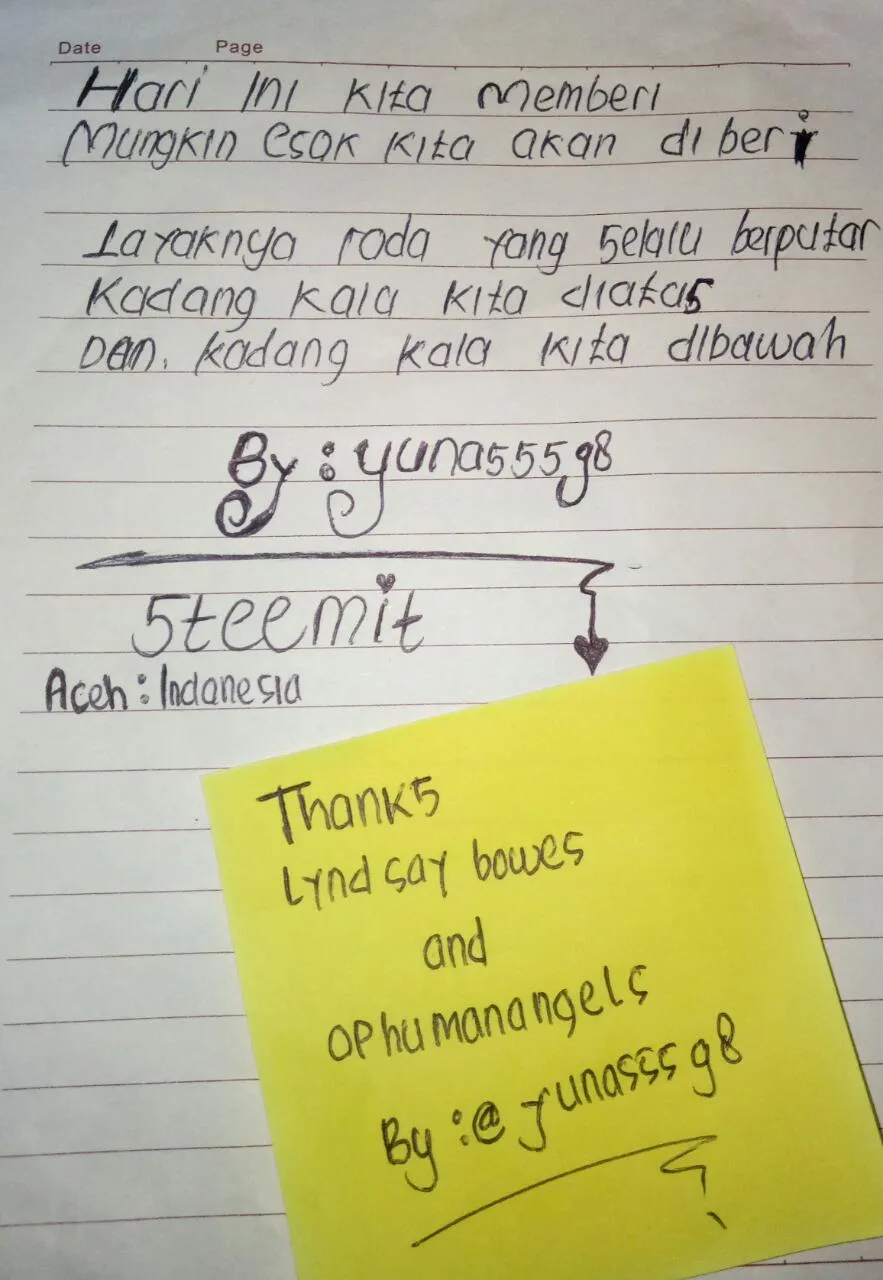 Date Page
Hari ini kita memberi
Mungkin esok kita akan diberi
Layaknya roda yang selalu berputar
Kadang kala kita diatas
Dan. kadang kala kita dibawah
By : yunasssg8
Steemit
Aceh : Indanesia
Thanks
Lyndsay bowes
and
ophumanangels
By : @yunasssg8